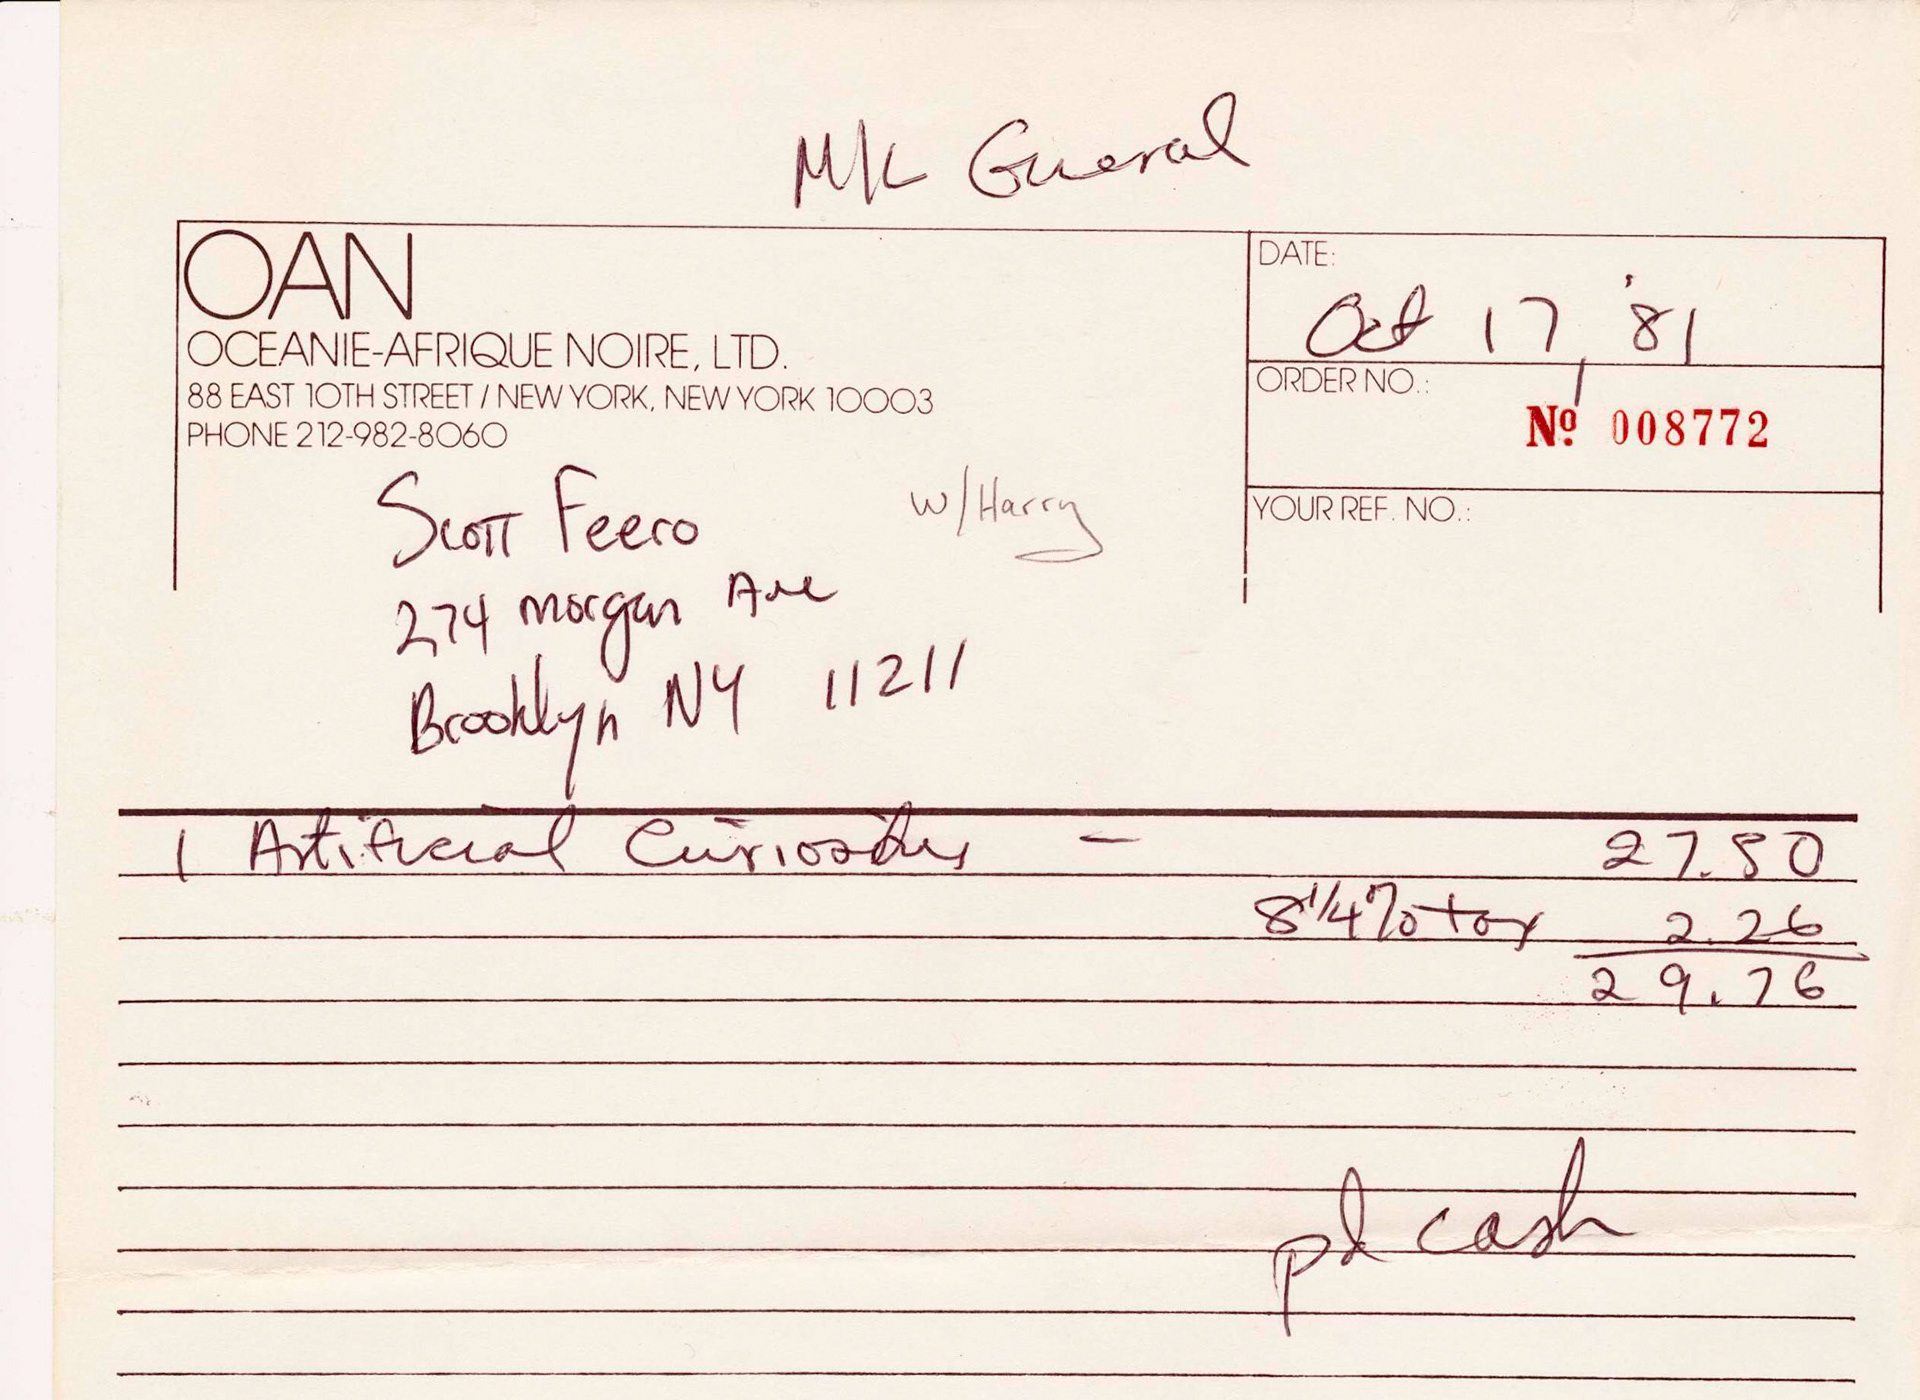 M/L General
OAN
OCEANIE-AFRIQUE NOIRE, LTD.
88 EAST 10TH STREET / NEW YORK, NEW YORK 10003
PHONE 212-982-8060
DATE:
Oct 17, '81
ORDER NO.:
Nº 008772
YOUR REF. NO.:
Scott Feero
w/Harry
274 Morgan Ave
Brooklyn NY 11211
1 Artificial Curiosities - 27.50
8 1/4% tax 2.26
29.76
pd cash